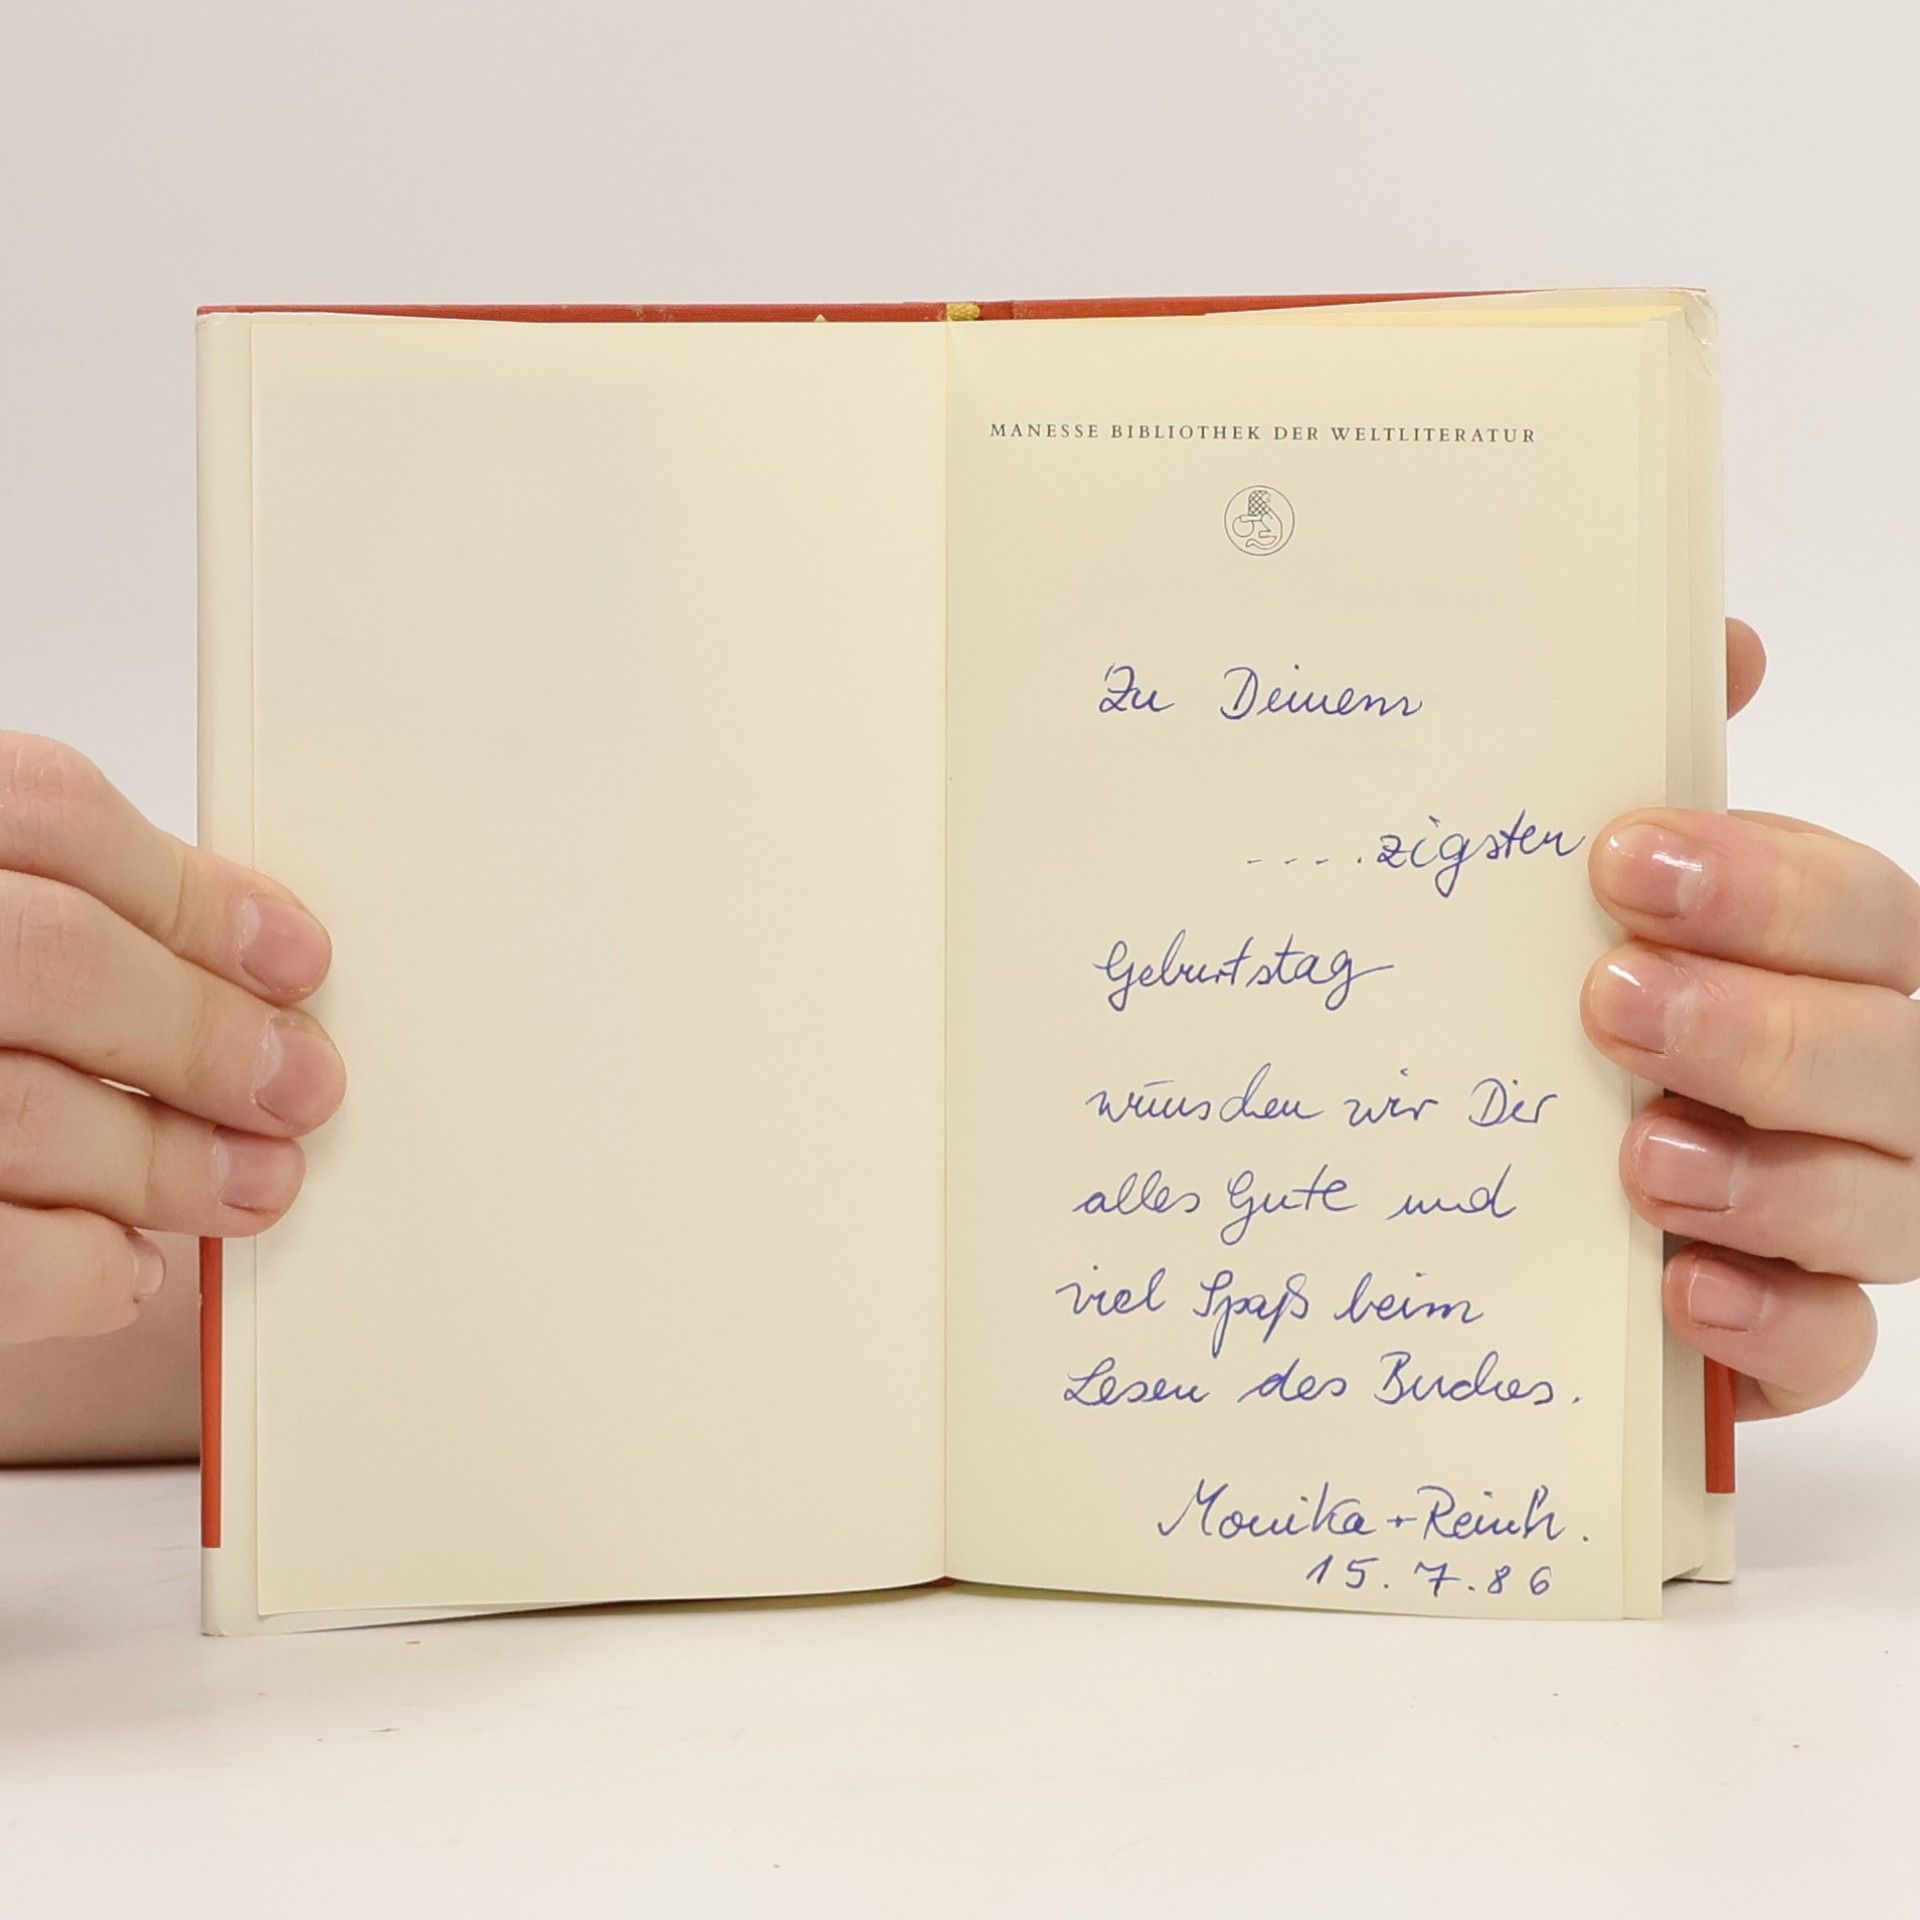 MANESSE BIBLIOTHEK DER WELTLITERATUR
Zu Deinem
- - - . . zigsten
Geburtstag
wünschen wir Dir
alles Gute und
viel Spaß beim
Lesen des Buches.
Monika +
15. 7. 86